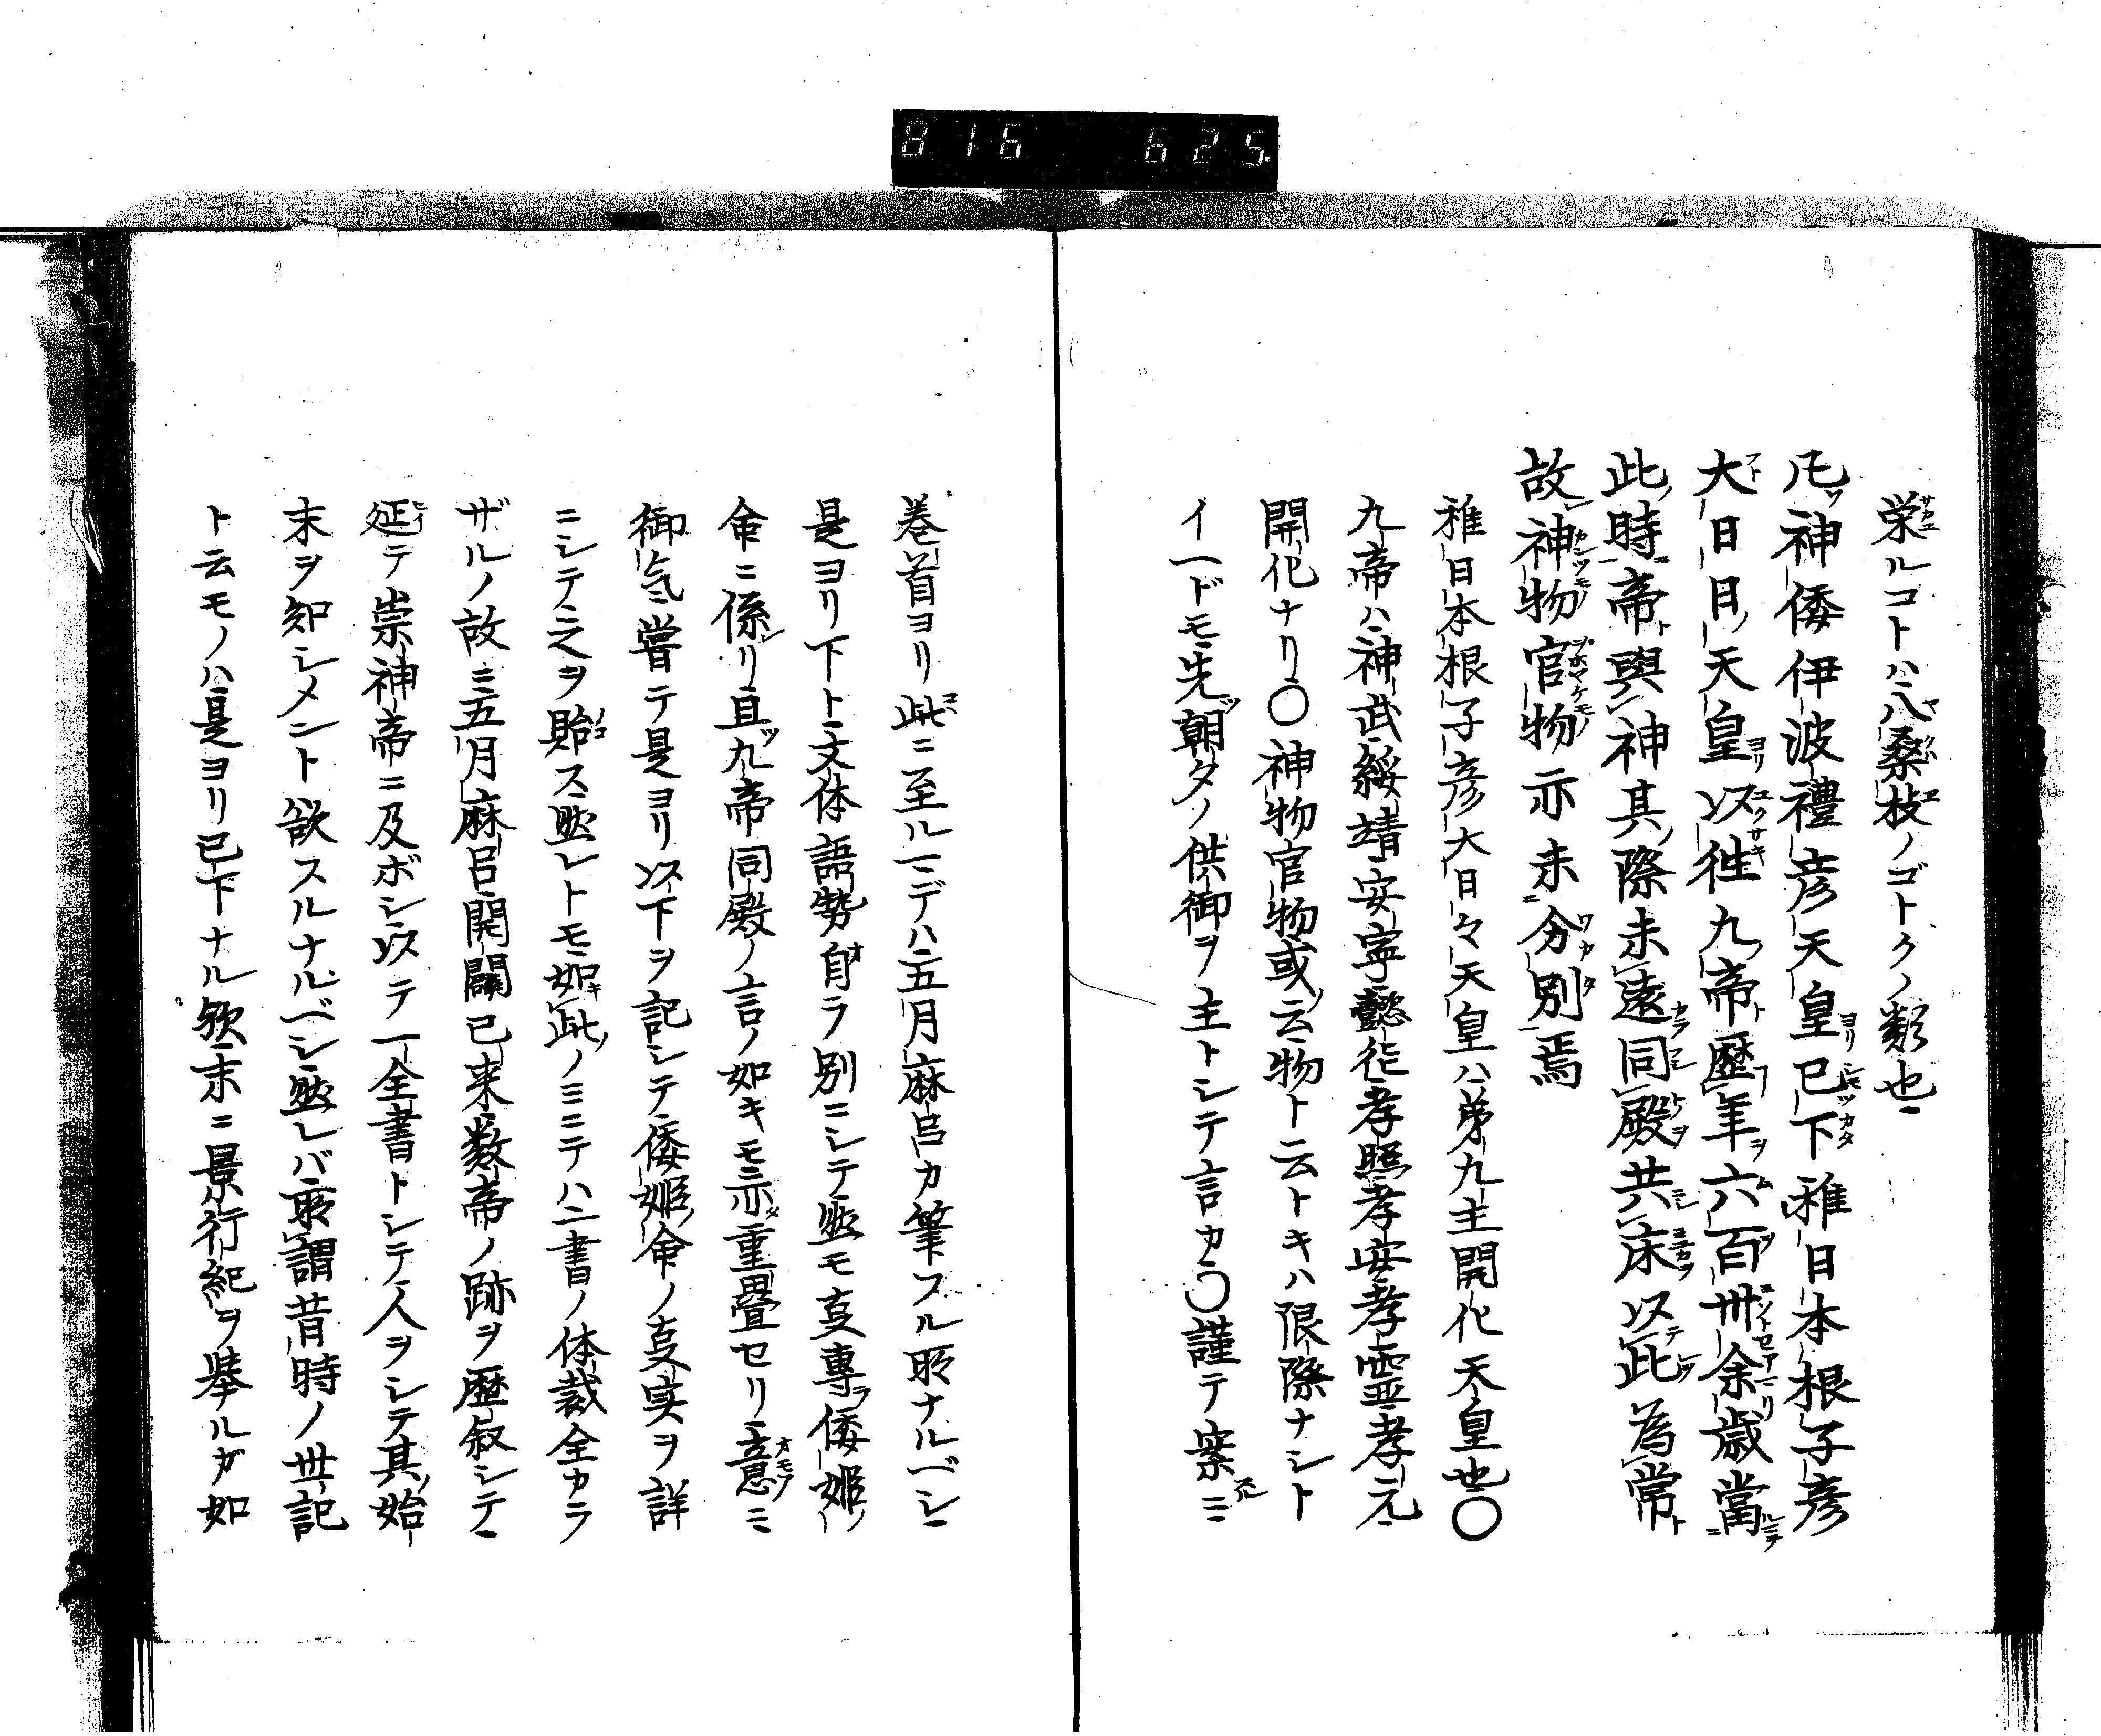 816 625.
栄ルコトハ八桑枝ノゴトクノ類也
凡神倭伊波禮彦天皇已下稚日本根子彦
大日日天皇以往九帝歴年六百卅余歳當
此時帝與神其際未遠同殿共床以此為常
故神物官物亦未分別焉
稚日本根子彦大日々天皇ハ第九主開化天皇也〇
九帝ハ神武綏靖安寧懿徳孝照孝安孝霊孝元
開化ナリ〇神物官物或云物ト云トキハ限際ナシト
イヘドモ先朝夕ノ供御ヲ主トシテ言カ〇謹テ案ニ
巻首ヨリ此ニ至ルマデハ五月麻呂カ筆フル所ナルベシ
是ヨリ下ト文体語勢自ラ別ニシテ然モ事専ラ倭姫ノ
命ニ係リ且九帝同殿ノ言ノ如キモ亦重畳セリ意ニ
御気嘗テ是ヨリ以下ヲ記シテ倭姫命ノ事実ヲ詳
ニシテ之ヲ貽ス然レトモ如此ノミニテハ二書ノ体裁全カラ
ザルノ故ニ五月麻呂開闢已来数帝ノ跡ヲ歴叙シテ
延テ崇神帝ニ及ボシ以テ一全書トシテ人ヲシテ其始
末ヲ知シメント欲スルナルベシ然レバ所謂昔時ノ世記
ト云モノハ是ヨリ已下ナル歟末ニ景行紀ヲ挙ルガ如